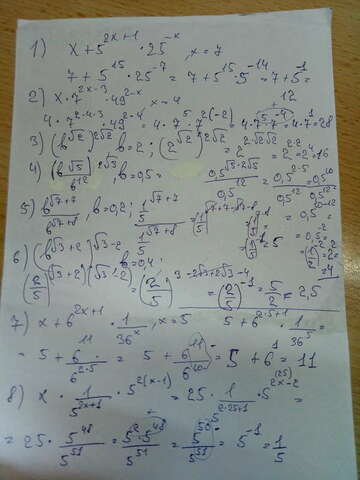 1) x+5^{2x+1} · 25^{-x}, x=7
7+5^{15} · 25^{-7} = 7+5^{15} · 5^{-14} = 7+5^{1} =
12
2) x · 7^{2x-3} · 49^{2-x} x=4
4 · 7^{2·4-3} · 49^{2-4} = 4 · 7^{5} · 7^{2(-2)} = 4 · 7^{5} · 7^{-4} = 4 · 7^{1} = 28
3) (b^{√2})^{2√2} b=2; (2^{√2})^{2√2} = 2^{2√2√2} = 2^{2·2} = 2^{4} = 16
4) (b^{√5})^{2√3} / b^{12}, b=0,5 =
5) b^{√7+7} / b^{√7+8} b=0,2;
6) (b^{√3+2})^{√3-2} b=0,4;
(2/5)^{√3+2)(√3-2} = (2/5)^{3-2√3+2√3-4} = (2/5)^{-1} = 5/2 = 2,5
7) x+6^{2x+1} · 1/36^{x}, x=5 5+6^{2·5+1} · 1/36^{5} =
= 5 + 6^{11} / 6^{2·5} = 5 + 6^{11} / 6^{10} = 5 + 6^{1} = 11
8) x · 1/5^{2x+1} · 5^{2(x-1)} = 25 · 1/5^{2·25+1} · 5^{2x-2} =
= 25 · 5^{48} / 5^{51} = 5^{2} · 5^{48} / 5^{51} = 5^{50} / 5^{51} = 5^{-1} = 1/5